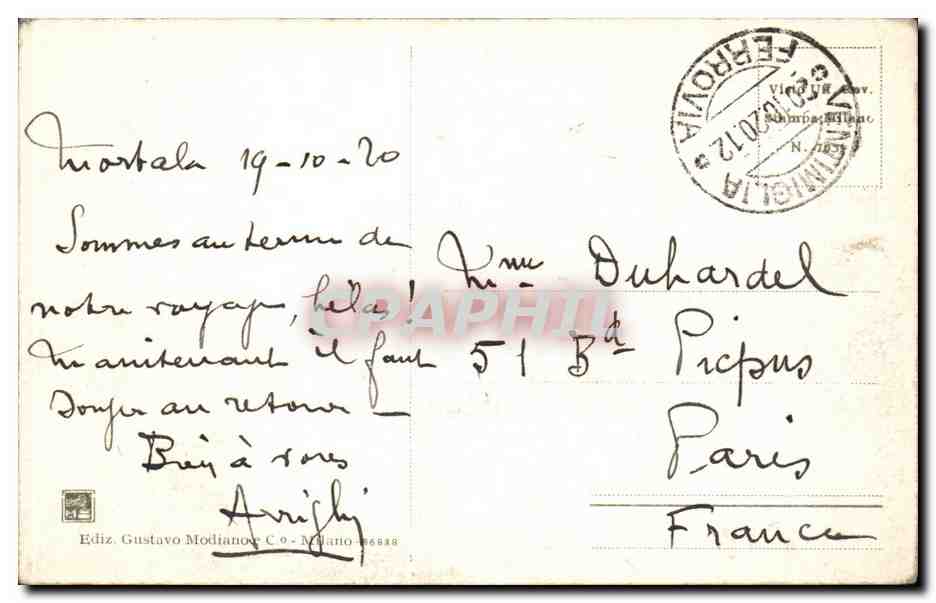 Mortala 19-10-20
Sommes au terme de
notre voyage, hélas!
Maintenant il faut
songer au retour —
Bien à vous
Arrighi
Ediz. Gustavo Modiano e Co - Milano - 86888
VENTIMIGLIA
FERROVIA
10.20.12
Visto Uff. Rev.
Stampa Milano
N.
Mme Duhardel
51 Bd Picpus
Paris
France
CPAPHIL